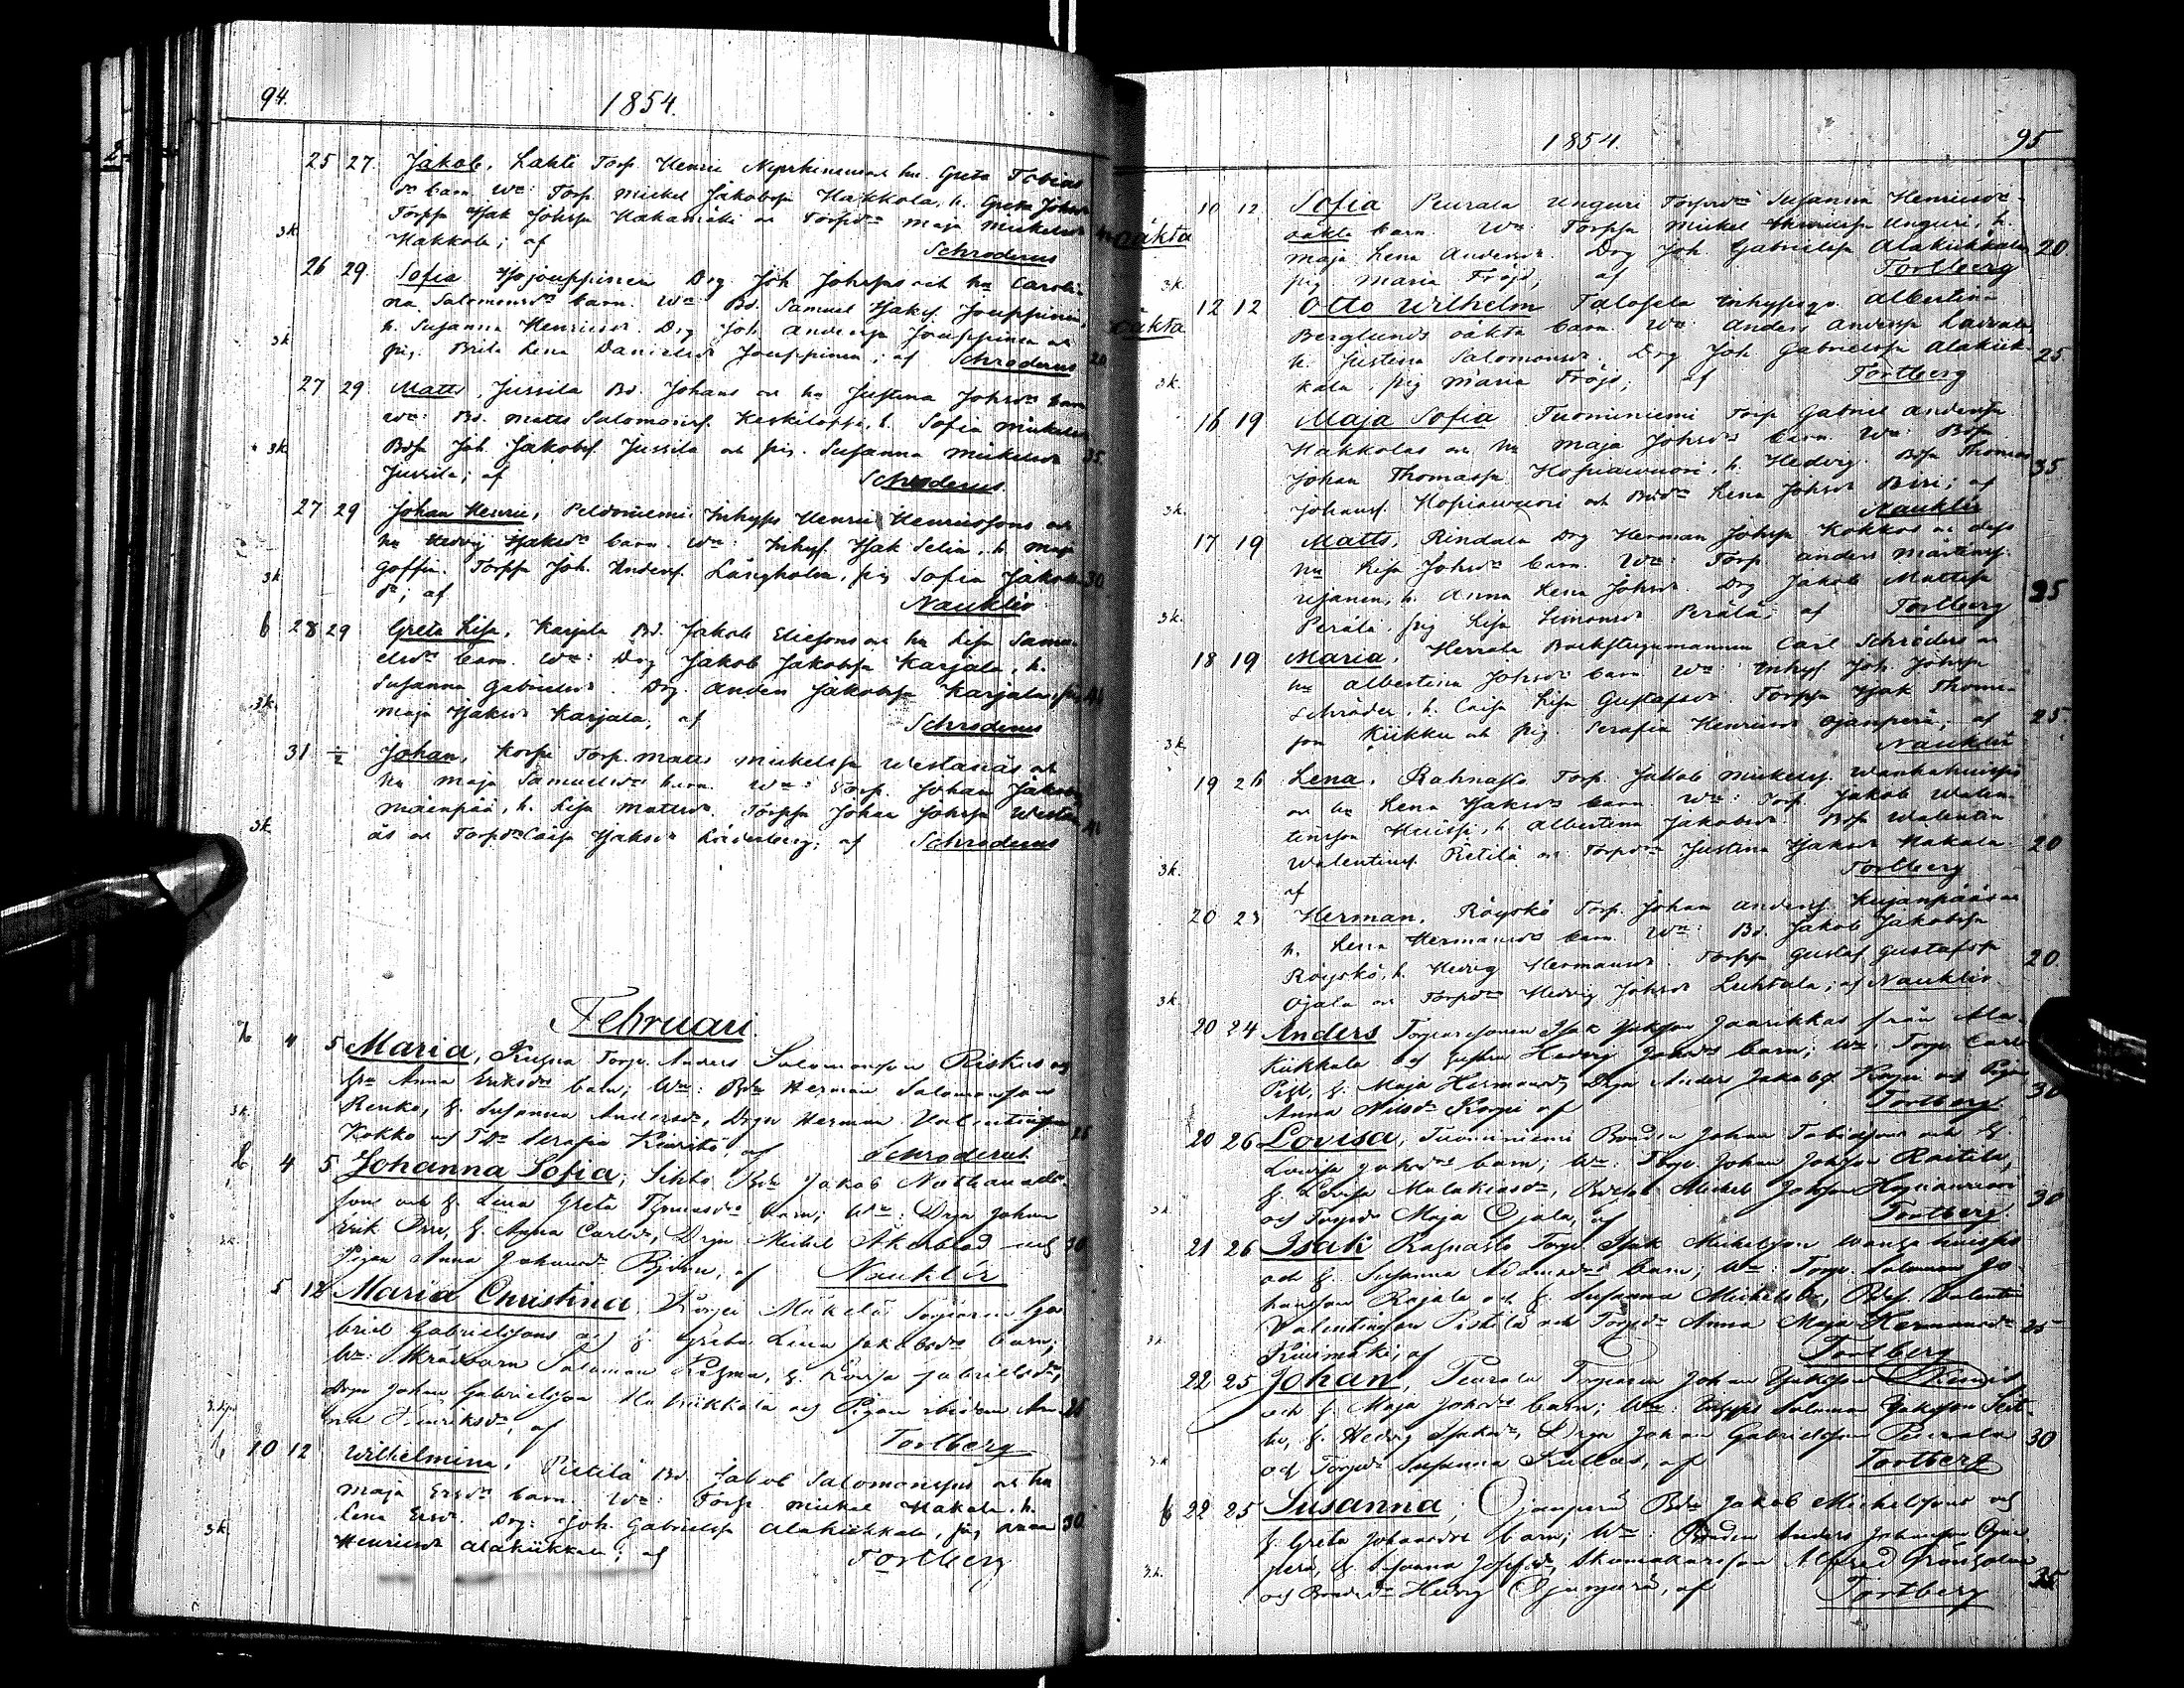 94.
1854.
25 27. Jakob, Lahti Torp. Henric Nyrhinens och hu. Greta Tobias
dr barn. Wn: Torp. Mickel Jakobss. Hakkola, h. Greta Johsdr
Torpss Isak Johss. Hakamäki och Torpdr Maja Mickelsdr
3k. Hakkola; af Schroderus
26 29. Sofia Jouppinen Drg Joh. Johss. och hu Caroli-
na Salomonsdr barn. Wn: Bd. Samuel Isakss. Jouppinen,
h. Susanna Henricsdr. Drg Joh. Anderss. Jouppinen och
3k pig. Brita Lena Danielsdr Jouppinen; af Schroderus 20
27 29 Matts, Jussila Bd. Johans och hu Justina Johsdr barn
Wn: Bd. Matts Salomonss. Keskiloppi, h. Sofia Mickelsdr
3k Bdss Joh. Jakobss. Jussila och pig. Susanna Mickelsdr 35
Jussila; af Schroderus
27 29 Johan Henric, Peldoniemi Inhyss Henric Henricssons och
hu Hedvig Isaksdr barn. Wn: Inhys. Isak Selin, h. Maja
3k Torpss Joh. Anderss. Långholm, pig Sofia Jakobs- 30
dr; af Nauklér
6 28 29 Greta Lisa, Karjala Bd. Jakob Eliessons och hu Lisa Samu-
elsdr barn. Wn: Drg Jakob Jakobss. Karjala, h.
Susanna Gabrielsdr. Drg. Anders Jakobss. Karjala, pig
3k. Maja Isaksdr Karjala, af Schroderus
31 Johan, Korpi Torp. Matts Mickelss. Westanås och
hu Maja Samuelsdr barn. Wn: Torp. Johan Jakobss
Mäenpää, h. Lisa Mattsdr. Torpss Johan Johss. Westan-
3k ås och Torpdr Caisa Isaksdr Söderberg; af Schroderus
Februari.
4 5 Maria, Torp. Anders Salomonsson Riskus och
hu Anna Eriksdr barn; Wn: Bdn Herman Salomonsson
3k. Renko, h. Susanna Andersdr, Drgn Herman Valentinsson 25
Kokko och Tdr Serafia Kiuristö, af Schroderus
4 5 Johanna Sofia, Bdn Jakob Nathanaels-
sons och h. Lena Greta barn; Wn: Drgn Johan
Erik Orre, h. Anna Carlsdr, Drgn Mickel Åkerblad och 30
Pigan Anna Johansdr Björn, af Nauklér
5 12 Maria Christina, Korpi Mäkelä Torparen Ga-
briel Gabrielssons och h. Greta Lena Jakobsdr barn;
Wn: Salomon h. Gabrielsdr,
Drgn Johan Gabrielsson Alakiikkala och Pigan ibidem An- 25
na Henriksdr, af Tortberg
10 12 Wilhelmina, Pietilä Bd. Jakob Salomonsson och hu
Maja Ersdr barn. Wn: Torp. Mickel Hakala, h.
Lena Ersdr. Drg: Joh. Gabrielss. Alakiikkala, pig Anna 30
3k. Henricsdr Alakiikkala; af Tortberg
1854.
95
10 12 Sofia Peurala Unguri Torpdr Susanna Henricsdr
oäkta oäkta barn. Wn: Torpss Mickel Unguri, h.
Maja Lena Andersdr. Drg Joh. Gabrielss. Alakiikkala 20
3k. pig Maria Fröjd, af Tortberg
12 12 Otto Wilhelm Talosela Inhysq. Albertina
oäkta Berglunds oäkta barn. Wn: Anders Anderss.
h. Justina Salomonsdr. Drg Joh. Gabrielss. Alakiik- 25
3k. kala, pig Maria Fröjd; af Tortberg
16 19 Maja Sofia Tuominiemi Torp. Gabriel Anderss.
Hakkolas och hu Maja Johsdr barn. Wn: Bdss
Johan Thomass. Hopiawuori, h. Hedvig. Bdss Thomas 35
3k. Johanss. Hopiawuori och Bddr Lena Johsdr Biri; af
Nauklér
17 19 Matts, Rindala Drg Herman Johss. Kokkos och dess
hu Lisa Johsdr barn. Wn: Torp. Anders Mårtenss.
Ujanen, h. Anna Lena Johsdr. Drg Jakob Mattss. 25
3k. Perälä, pig Lisa Simonsdr Perälä; af Tortberg
18 19 Maria, Herrala Backstugumannen Carl Schröders och
hu Albertina Johsdr barn. Wn: Inhys. Joh. Johss.
Schröder, h. Caisa Lisa Gustafsdr. Torpss Isak Thomas-
son Kiikku och pig. Serafia Henricsdr Ojanperä; af 25.
3k. Nauklér
19 26 Lena, Rahnasto Torp. Jakob Mickelss. Wanhahuispis
och hu Lena Isaksdr barn. Wn: Torp. Jakob Walen-
tinsson Huispi, h. Albertina Jakobsdr. Bdss Walentin
Walentinss. Pietilä och Torpdr Justina Isaksdr Hakala 20
3k. af Tortberg
20 23 Herman, Röyskö Torp. Johan Anderss. Kujanpääs och
h. Lena Hermansdr barn. Wn: Bd. Jakob Jakobss.
Röyskö, h. Hedvig Hermansdr. Torpss Gustaf Gustafss. 20
3k. Ojala och Torpdr Hedvig Johsdr Luhtala; af Nauklér.
20 24 Anders Torparesonen Isak Isakson Jaarikkas från Ala-
kiikkala och hustru Hedvig Johsdr barn; Wn: Torp. Carl
h. Maja Hermansdr, Drgn Anders Jakobss. Korpi och Pigan 30
Anna Nilsdr Korpi af Tortberg
20 26 Lovisa, Tuominiemi Bonden Johan Tobiassons och h.
Lovisa Johsdr barn; Wn: Torp. Johan Johsson
h. Lovisa Malakiasdr, Bdeson Mickel Johsson Hopiavuori 30
och Torpdr Maja Ojala, af Tortberg
21 26 Isak Rahnasto Torp. Isak Mickelsson Wanhahuispis
och h. Susanna Adamsdr barn; Wn: Torp. Salomon Jo-
hansson Rajala och h. Susanna Mickelsdr, Bdss Valentin
Valentinsson Pietilä och Torpdr Anna Maja Hermansdr 25
3k. Kivimäki; af Tortberg
22 25 Johan, Peurala Torparen Johan Isaksson
och h. Maja Johsdr barn; Wn: Inhyss Salomon Isaksson
h. Hedvig Isaksdr, Drgn Johan Gabrielsson Peurala 30
3k och Torpdr Susanna Kullas, af Tortberg
6 22 25 Susanna, Ojanperä Bdn Jakob Mickelssons och
h. Greta Johansdr barn; Wn: Bonden Anders Johansson Ojan-
perä, h. Susanna Josefsdr, Skomakaresson Alfred Grönholm 35
3k. och Bondedr Hedvig Ojanperä, af Tortberg